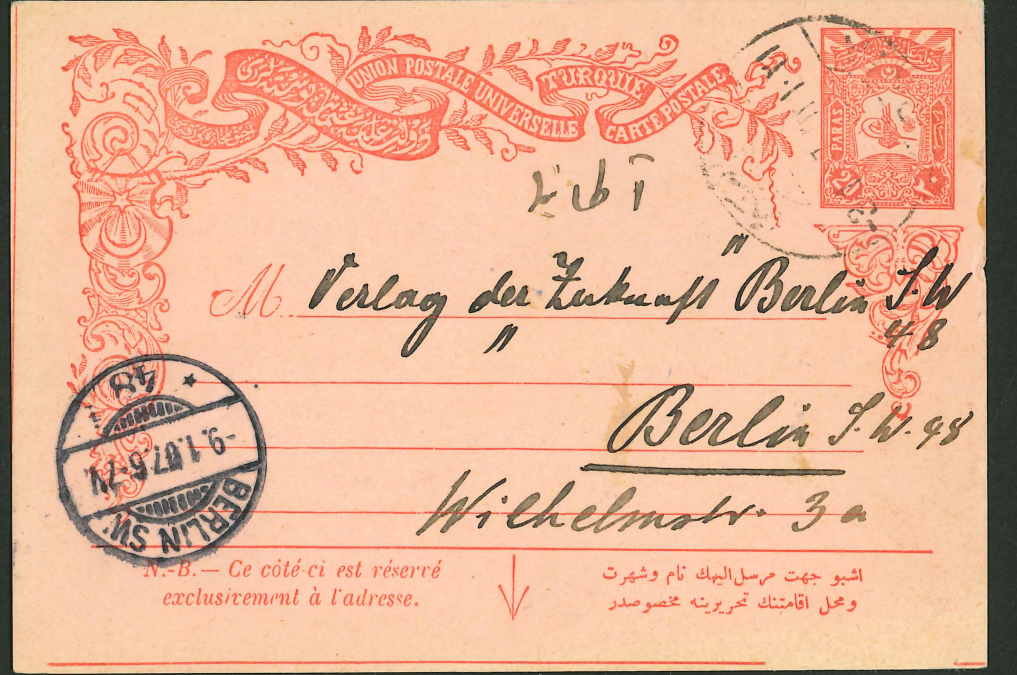 UNION POSTALE UNIVERSELLE
TURQUIE
CARTE POSTALE
PARAS
20
٢٠
"
M. Verlag der Zukunft Berlin S.W
" 48
Berlin S.W. 48
Wilhelmstr. 3a
48
-9.1.07.6-7N.
BERLIN SW.
N.-B.— Ce côté-ci est réservé
exclusivement à l'adresse.
اشبو جهت مرسل اليهك نام وشهرت
ومحل اقامتنك تحريرينه مخصوصدر